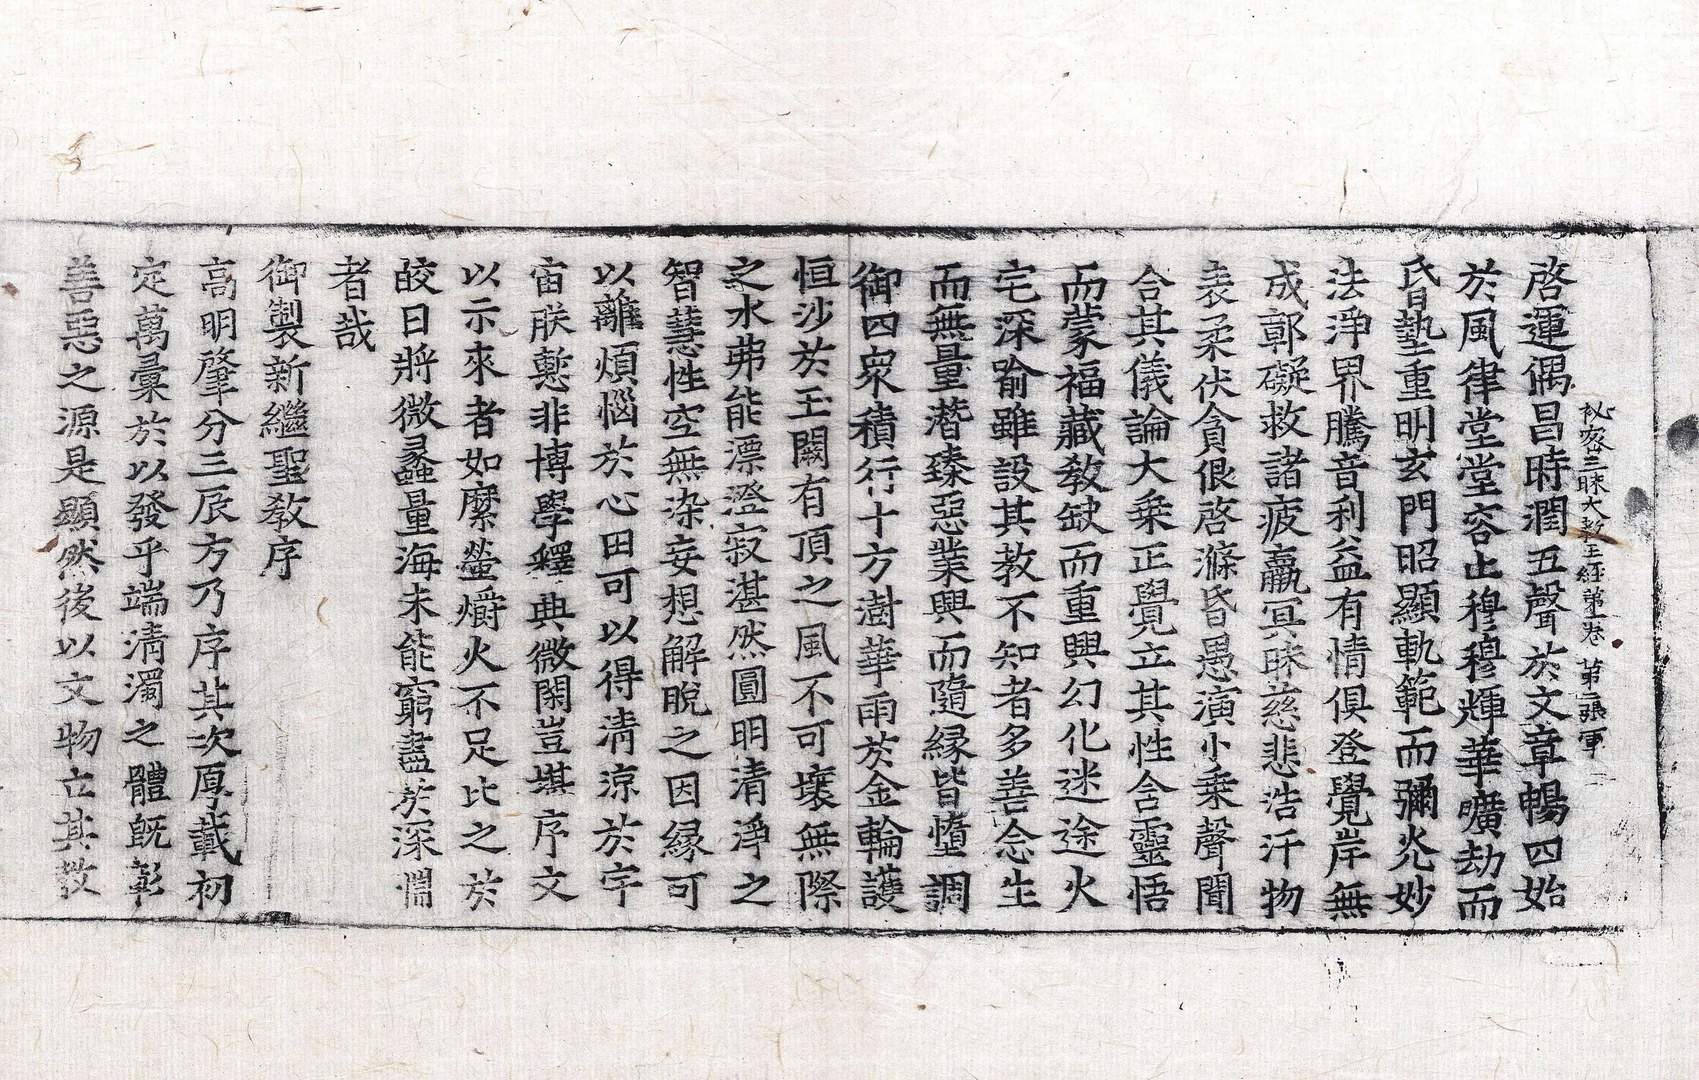 秘密三昧大教王経第一卷 第二張 軍
啓運偶昌時潤五聲於文章暢四始
於風律堂堂容止穆穆輝華曠劫而
昏墊重明玄門昭顯軌範而彌光妙
法淨界騰音利益有情俱登覺岸無
成郭礙救諸疲羸冥昧慈悲浩汗物
表柔伏貪佷啓滌昏愚演小乗聲聞
合其儀論大乗正覺立其性含靈悟
而蒙福藏教缺而重興幻化迷途火
宅深喻雖設其教不知者多善念生
而無量潛臻惡業興而隨縁皆墮調
御四衆積行十方澍華雨於金輪護
恒沙於玉闕有頂之風不可壞無際
之水弗能漂澄寂湛然圓明清淨之
智慧性空無染妄想解脫之因縁可
以離煩惱於心田可以得清涼於宇
宙朕慙非博學釋典微閑豈堪序文
以示來者如縻螢爝火不足比之於
皎日將微蠡量海未能窮盡於深淵
者哉
御製新繼聖教序
高明肇分三辰方乃序其次厚載初
定萬彙於以發乎端清濁之體旣彰
善惡之源是顯然後以文物立其教